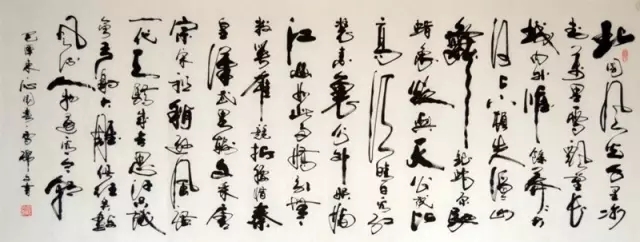 北国风光千里冰
封万里雪飘望长
城内外惟馀莽莽大
河上下顿失滔滔山
舞银蛇原驰
蜡象欲与天公试比
高须晴日看红
装素裹分外妖娆
江山如此多娇引无
数英雄竞折腰惜秦
皇汉武略输文采唐
宗宋祖稍逊风骚
一代天骄成吉思汗只识
弯弓射大雕俱往矣数
风流人物还看今朝
毛泽东沁园春雪